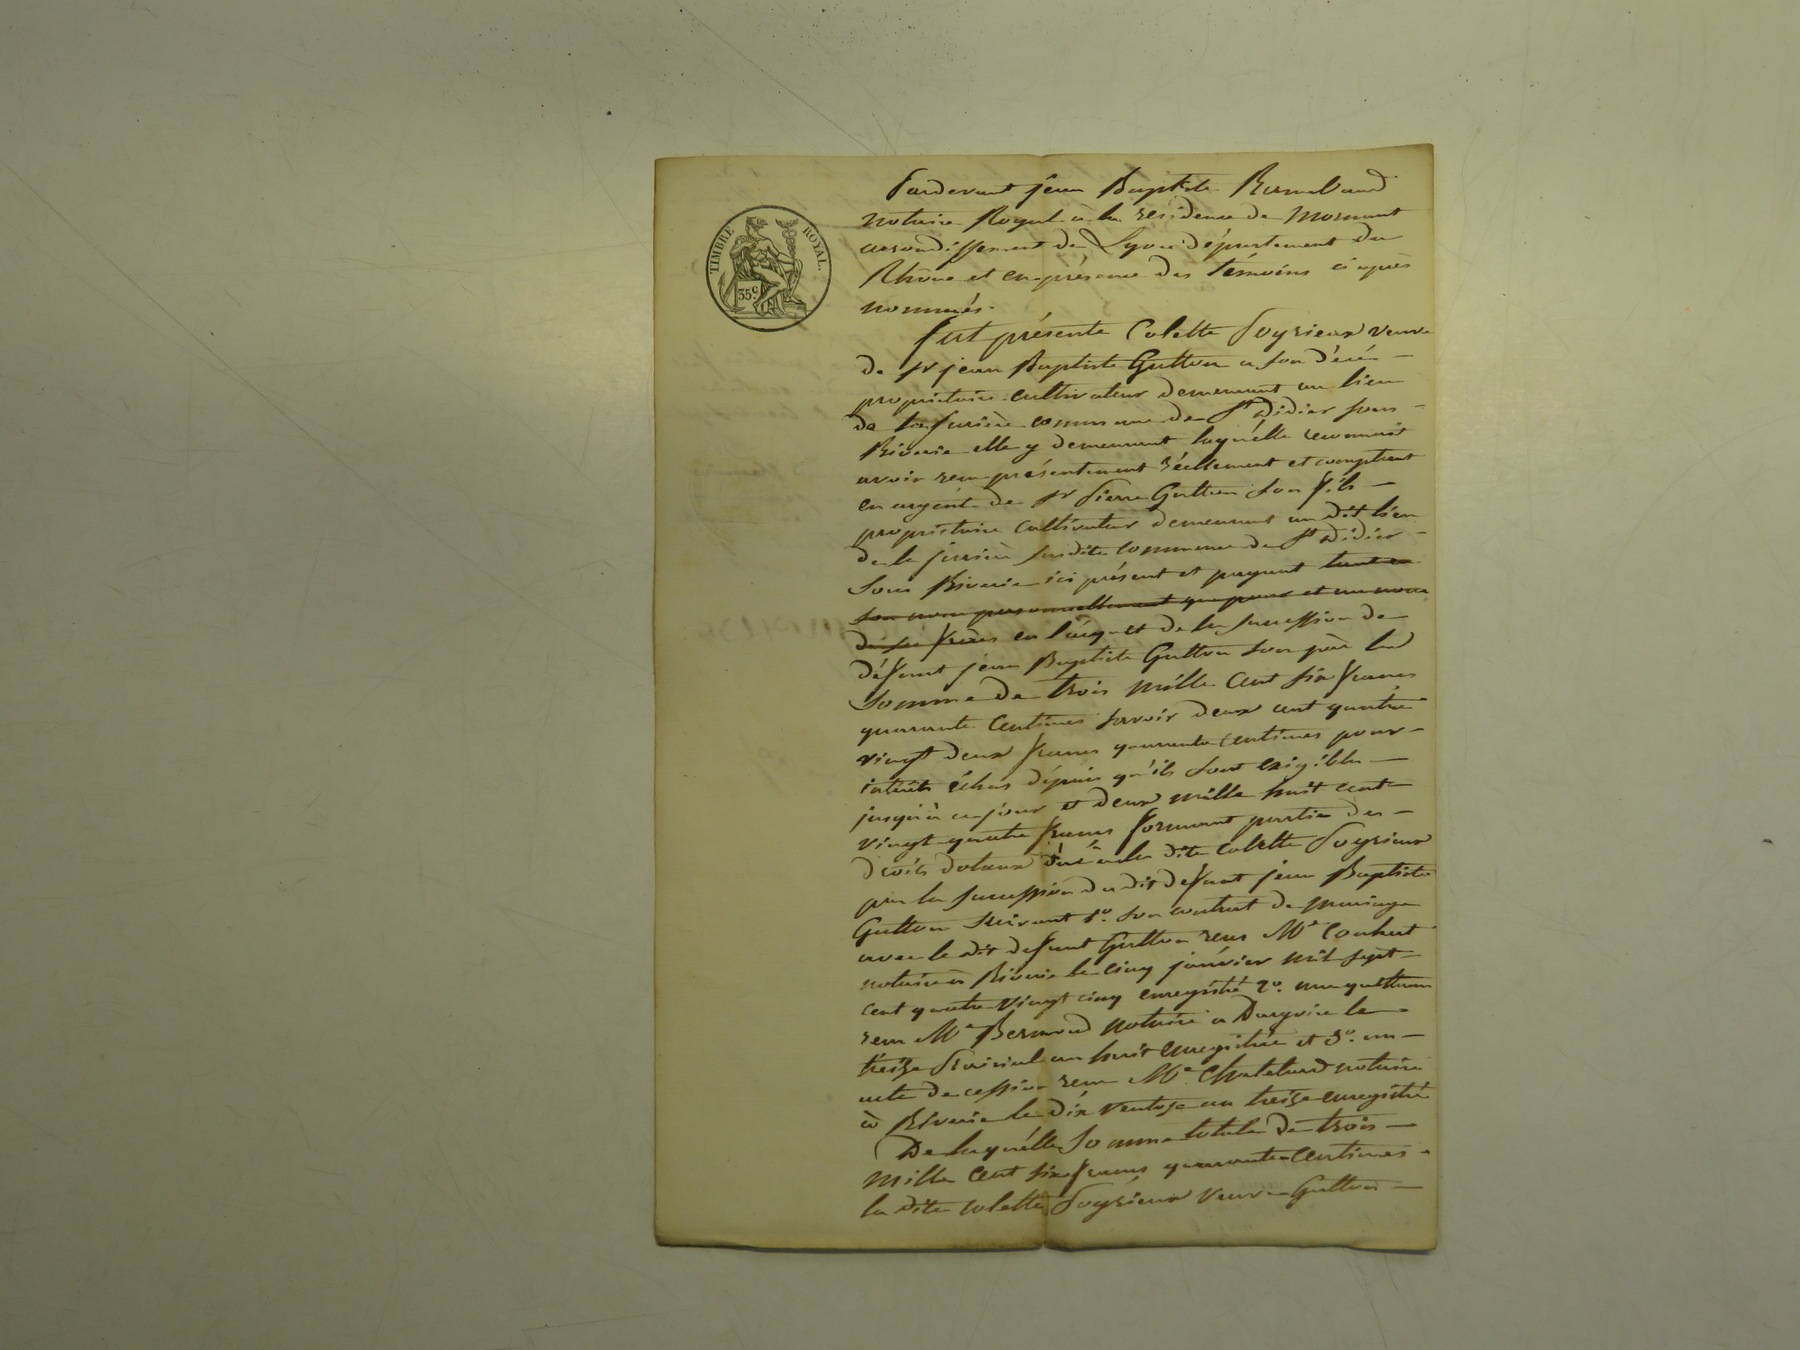 TIMBRE ROYAL.
35 c
Pardevant jean Baptiste
notaire Royal à la residence de Mornant
arrondissement de Lyon département du
Rhône et en présence des témoins ci après
nommés.
fut présente Colette Poyrieux veuve
de Sr jean Baptiste Gutton a son décés
propriétaire cultivateur demeurant au lieu
de la commune de St Didier sous
Riverie elle y demeurant laquélle reconnait
avoir reçu présentement réellement et comptant
en argent de Sr Pierre Gutton son fils
propriétaire cultivateur demeurant au dit lieu
de la susdite commune de St Didier
sous Riverie ici présent et payant tant en
son nom personnellement que pour et au nom
de ses frères en l'acquit de la succession de
défunt jean Baptiste Gutton son père la
somme de trois mille cent six francs
quarante centimes savoir deux cent quatre
vingt deux francs quarante centimes pour
intérêts échus dépuis qu'ils sont exigibles
jusqu'à ce jour et deux mille huit cent
vingt quatre francs formant partie des
droits dotaux dûs à la dite colette Poyrieux
par la succession du dit défunt jean Baptiste
Gutton suivant 1o. son contrat de mariage
avec le dit defunt Gutton reçu Me
notaire à Riverie le cinq janvier mil sept
cent quatre vingt cinq enregistré 2o. une quittance
reçu Me notaire a Dargoire le
treize Prairial an huit enregistrée et 3o. un
acte de cession reçu Me Chatelard notaire
à Riverie le dix ventose an treize enregistré
De laquélle somme totale de trois
mille cent six francs quarante centimes
la dite colette Poyrieux veuve Gutton